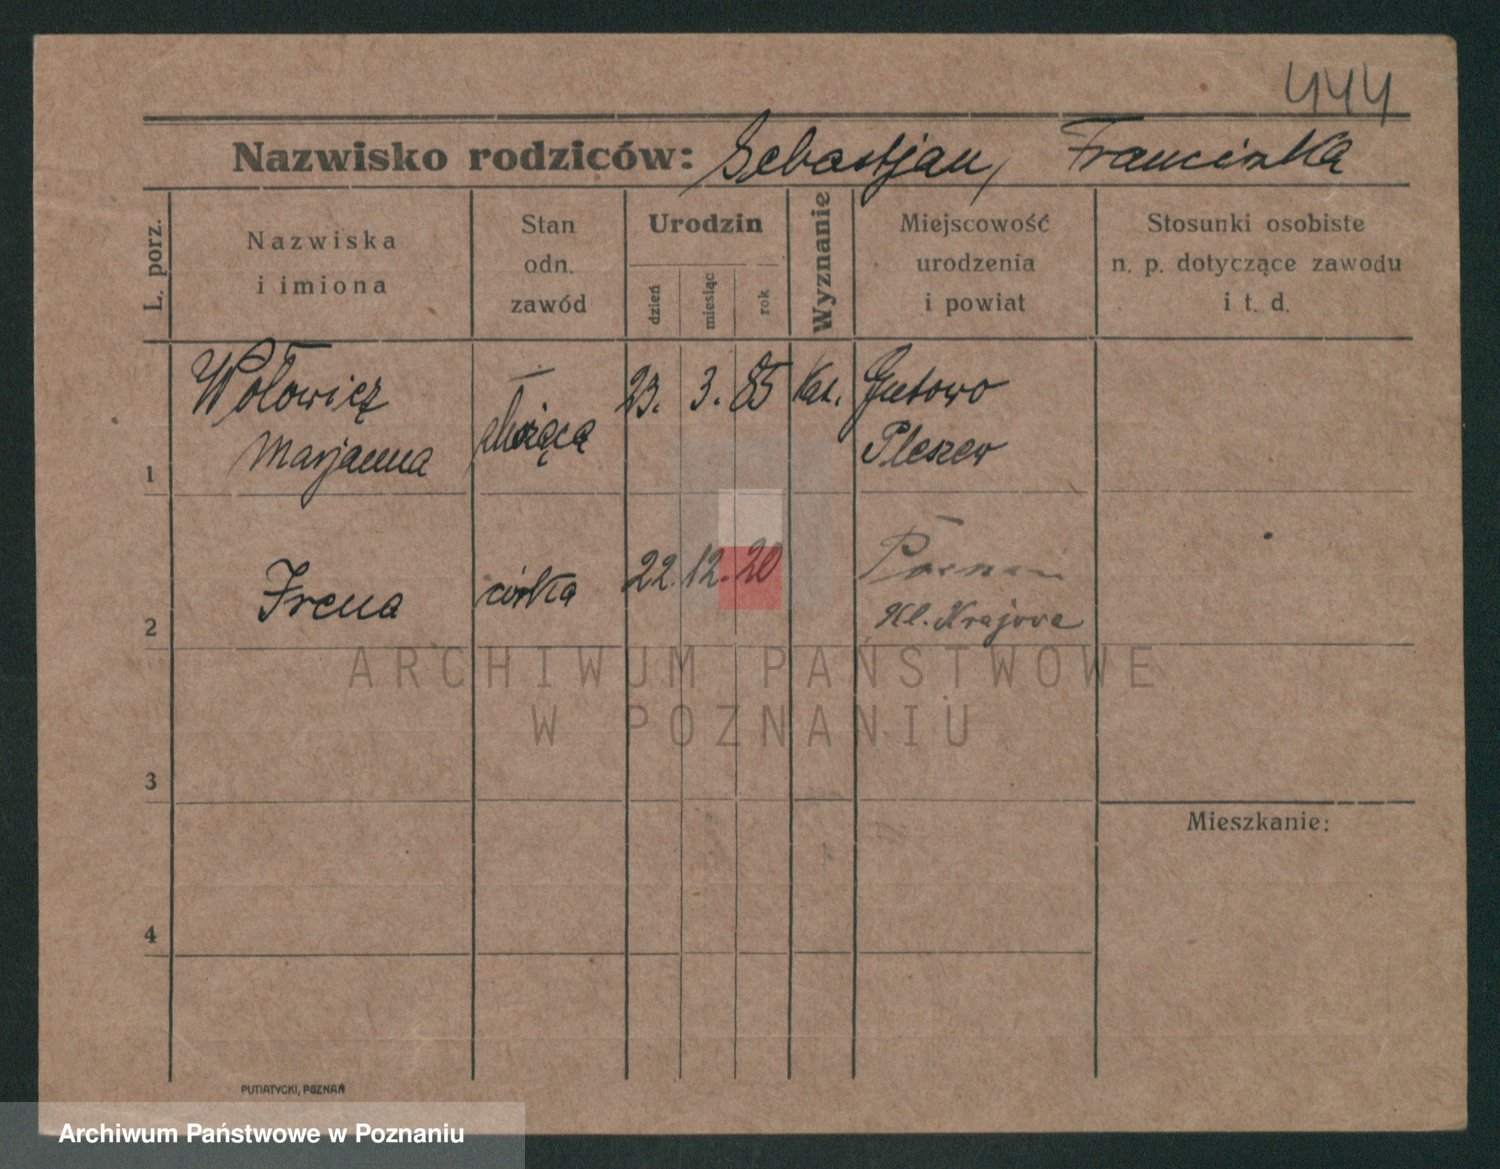 444
Nazwisko rodziców: Sebastjan, Franciszka
L. porz.
Nazwiska
i imiona
Stan
odn.
zawód
Urodzin
dzień
miesiąc
rok
Wyznanie
Miejscowość
urodzenia
i powiat
Stosunki osobiste
n. p. dotyczące zawodu
i t. d.
Wołowicz
Marjanna
służąca
23. 3. 85
kat.
Gutowo
Pleszew
1
Irena
córka
22. 12. 20
Poznań
Kl. Krajowa
2
3
Mieszkanie:
4
PUTIATYCKI, POZNAŃ
ARCHIWUM PAŃSTWOWE
W POZNANIU
Archiwum Państwowe w Poznaniu